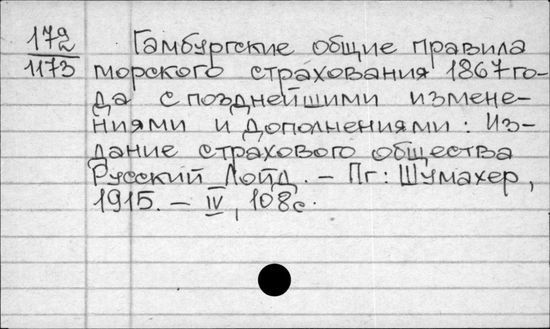 172
1173
Гамбургские общие правила
морского страхования 1867 го-
да с позднейшими измене-
ниями и дополнениями: Из-
дание страхового общества
Русский Лойд. – Пг: Шумахер,
1915. – IV, 108с.